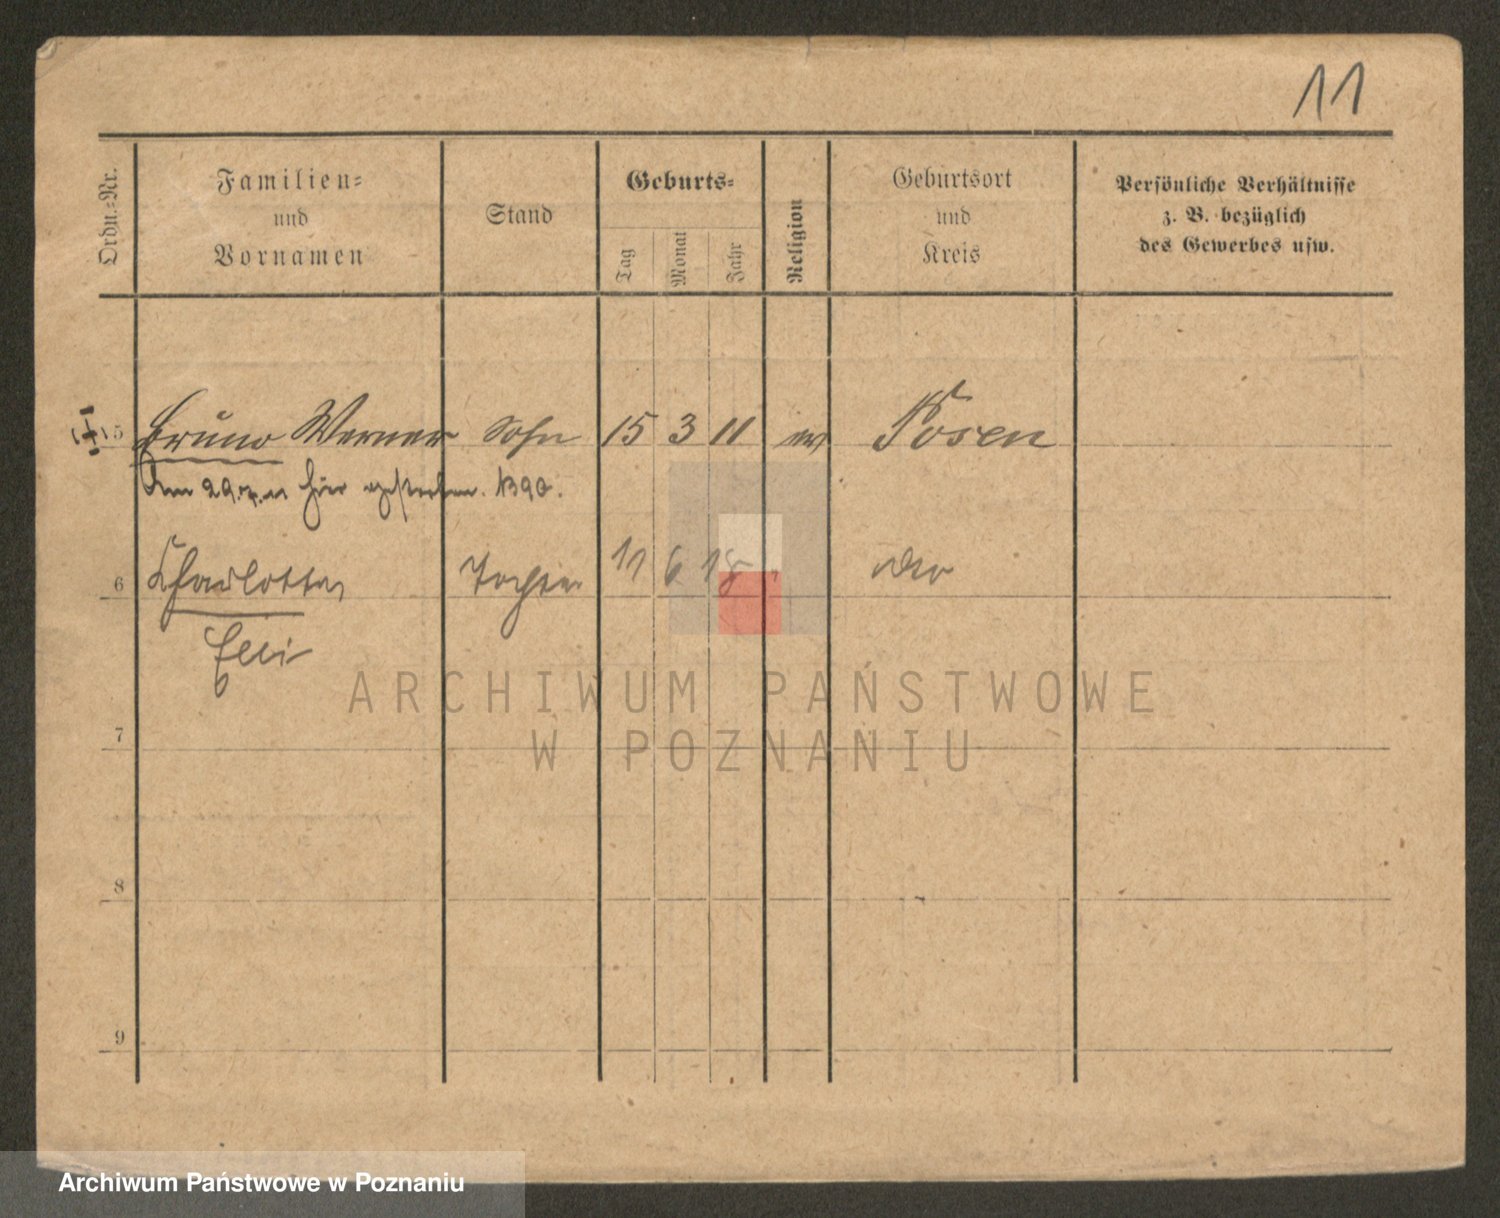 11
Ordn.-Nr.
Familien-
und
Vornamen
Stand
Geburts-
Tag
Monat
Jahr
Religion
Geburtsort
und
Kreis
Persönliche Verhältnisse
z. B. bezüglich
des Gewerbes usw.
5 Bruno Werner Sohn 15 3 11 ev Posen
Am 29.7.11 hier gestorben. 1390.
6 Charlotte Tochter 11 6 18
Elli
ARCHIWUM PAŃSTWOWE
W POZNANIU
7
8
9
Archiwum Państwowe w Poznaniu